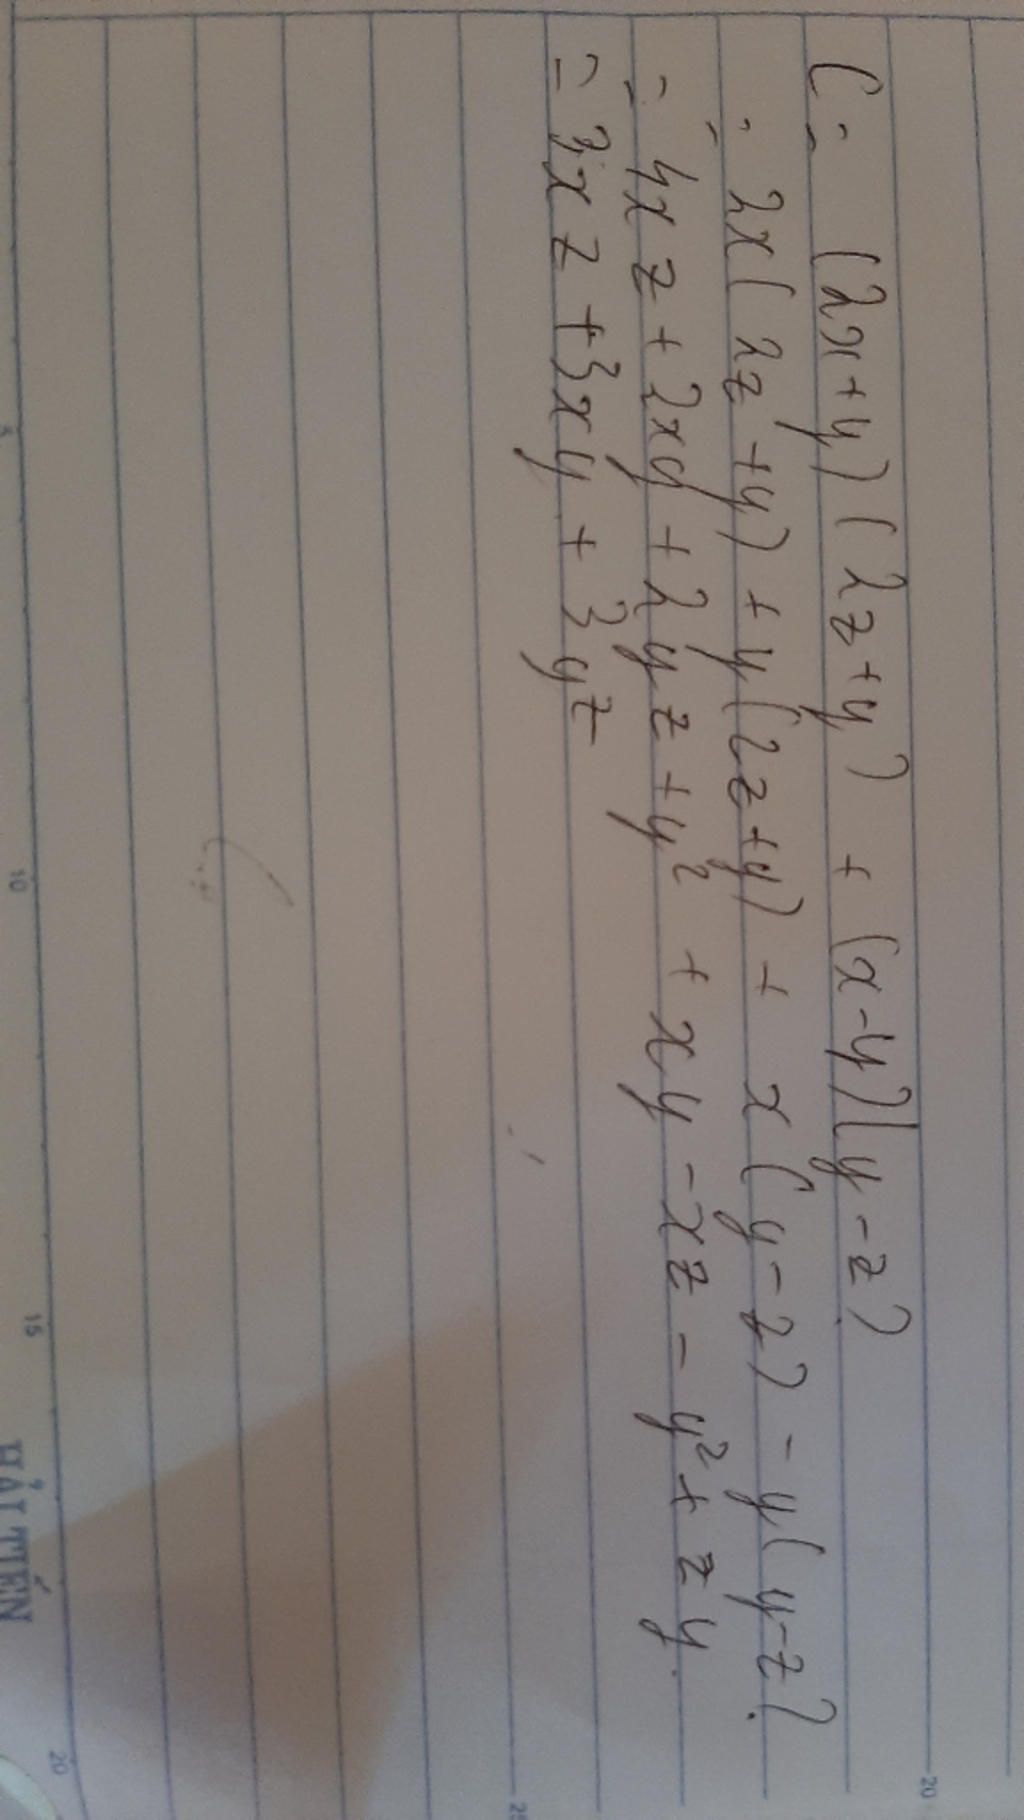 C = (2x+y)(2z+y) + (x-y)(y-z)
= 2x(2z+y) + y(2z+y) + x(y-z) - y(y-z).
= 4xz + 2xy + 2yz + y² + xy - xz - y² + zy.
= 3xz + 3xy + 3yz
5
10
15
20
20
25
HẢI TIẾN